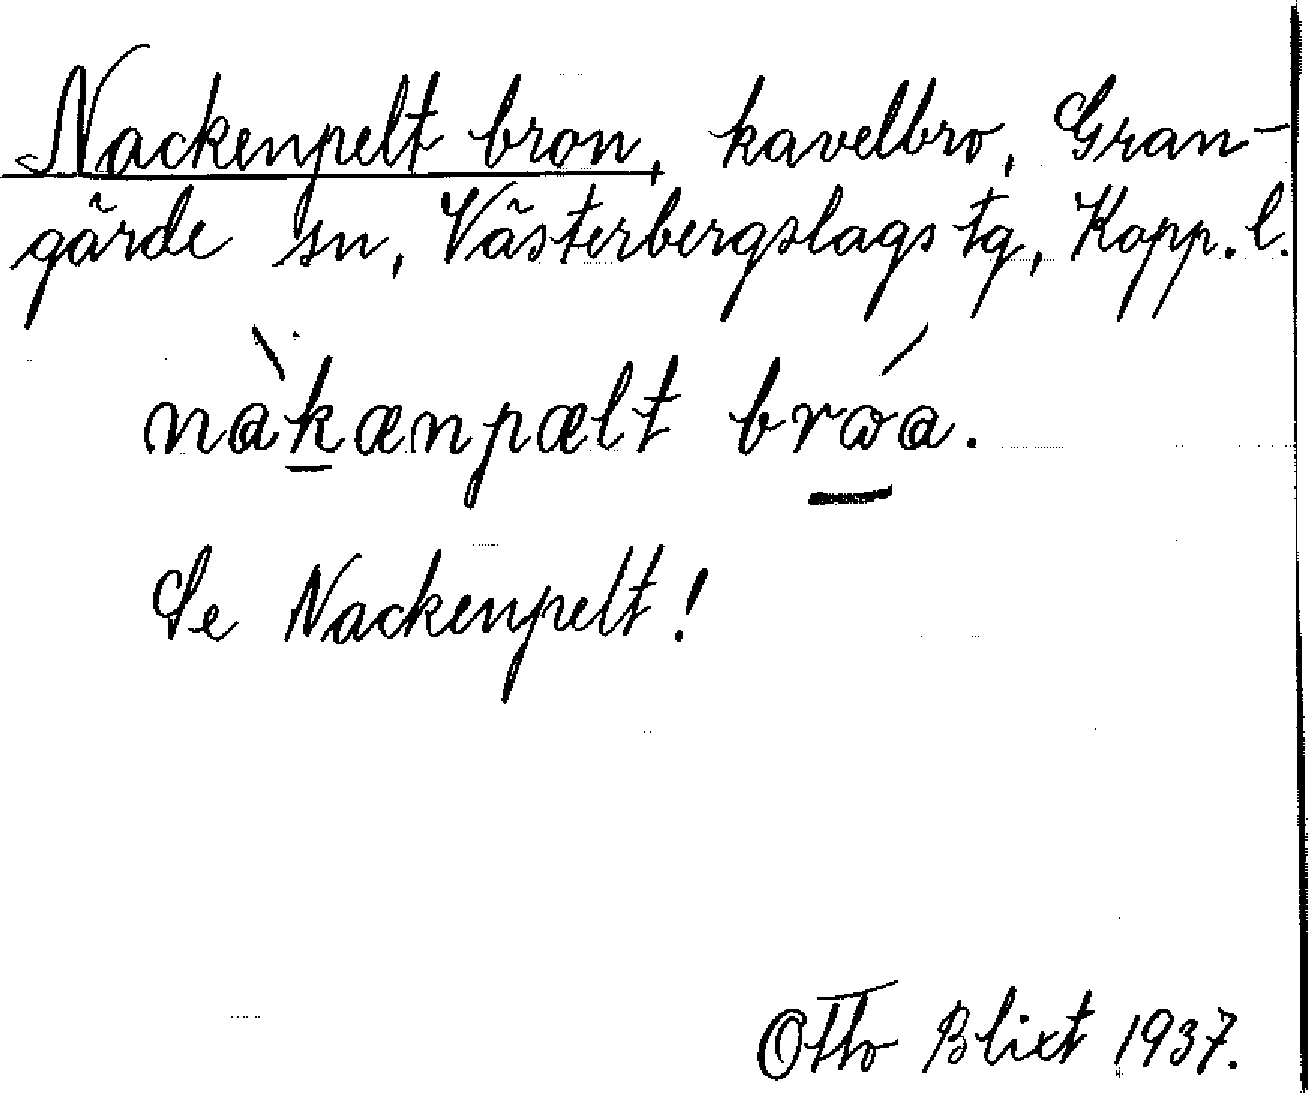 Nackenpelt bron, kavelbro, Gran-
gärde sn, Västerbergslags tg, Kopp. l.
nàkænpælt bróa.
Se Nackenpelt!
Otto Blixt 1937.